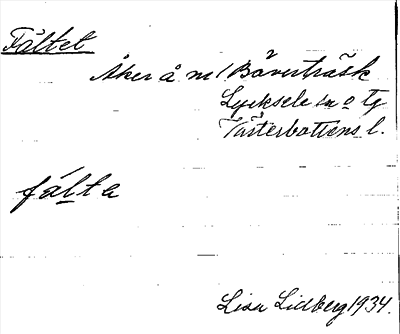 Fältet
Åker å nr 1 Bäverträsk
Lycksele sn o tg
Västerbottens l.
fálta
Lisa Lidberg 1934.